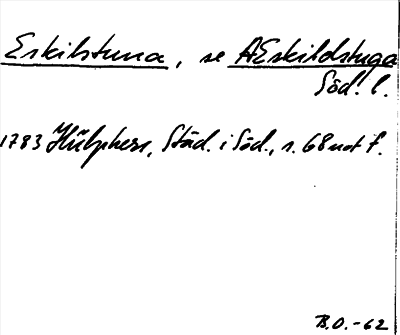 Eskilstuna, se AEskildstuga
Söd. l.
1783 Hülphers, Städ. i Söd., s. 68 not f.
B.O.-62